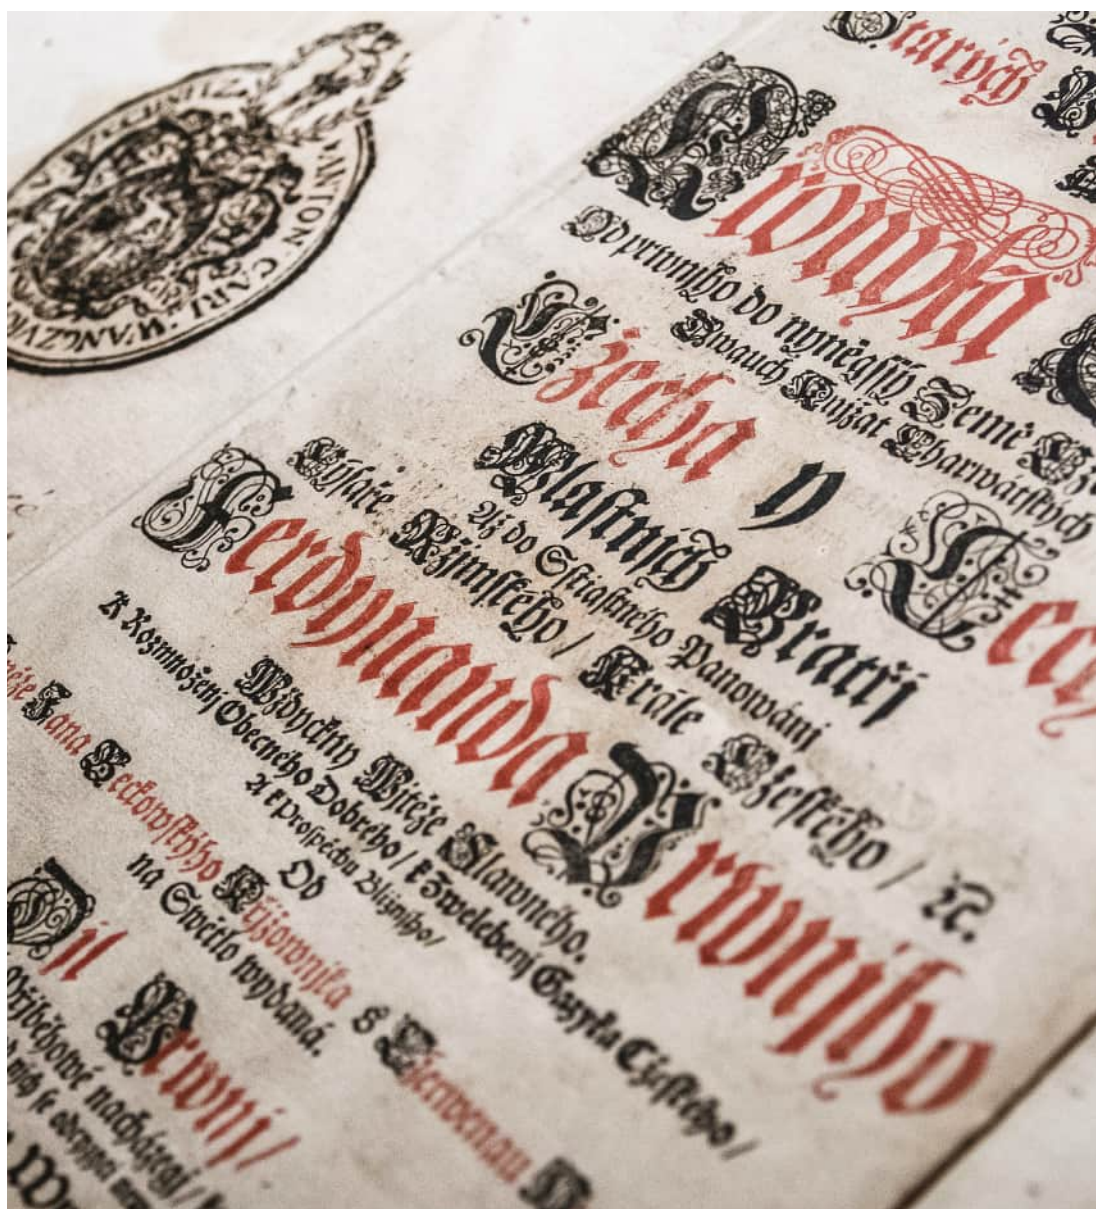 ANTON CARL
Starých
Kronyka
Od prwnjho do nyněgssý Země
Dwauch Knjžat Charwátských
Cžecha y Lech
Wlastnjch Bratřj
Až do Sstiastného Panowánj
Cýsaře Ržjmského / Krále Cžeského / ꝛc.
Ferdynanda Prwnjho
Wždyckny Wjtěze Slawného.
K Rozmnoženj Obecného Dobrého / k Zwelebenj Gazyka Cžeského /
A k Prospěchu Bližnjho /
Od
Jana Beckowského Křjžownjka s Czerwenau
na Swětlo wydaná.
Djl Prwnj /
Přjběhowé nacházegj /